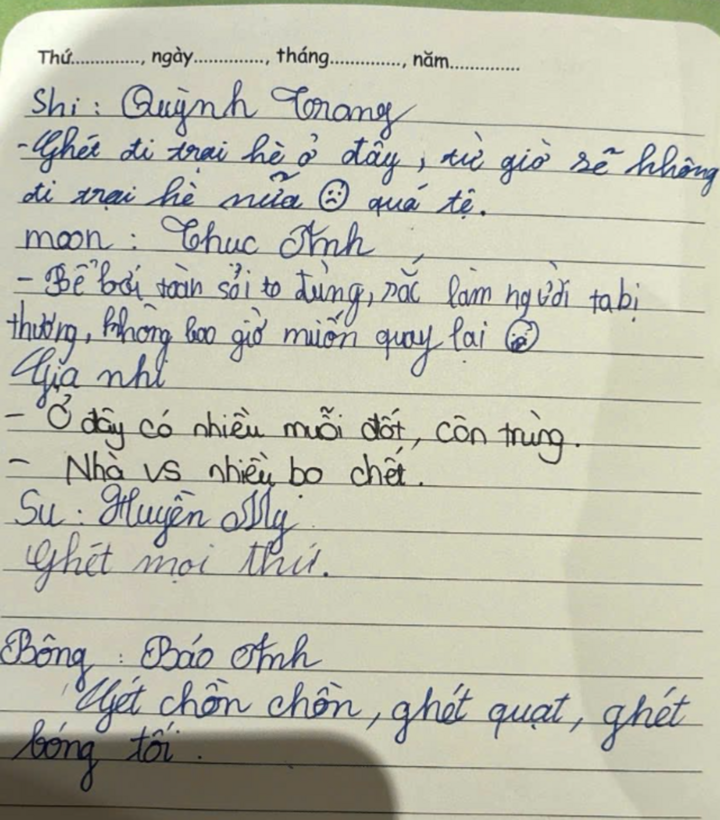 Thứ.............., ngày.............., tháng.............., năm..............
Shi : Quỳnh Trang
- Ghét đi trại hè ở đây, từ giờ sẽ không
đi trại hè nữa ☹ quá tệ.
moon : Thuc Anh
- Bể bơi toàn sỏi to đùng, sắc làm người ta bị
thương, không bao giờ muốn quay lại
Gia nhi
- Ở đây có nhiều muỗi đốt, côn trùng.
- Nhà vs nhiều bo chết.
Su : Huyền My
Ghét mọi thứ.
Bông : Bảo Anh
Gét chồn chồn, ghét quạt, ghét
bóng tối.